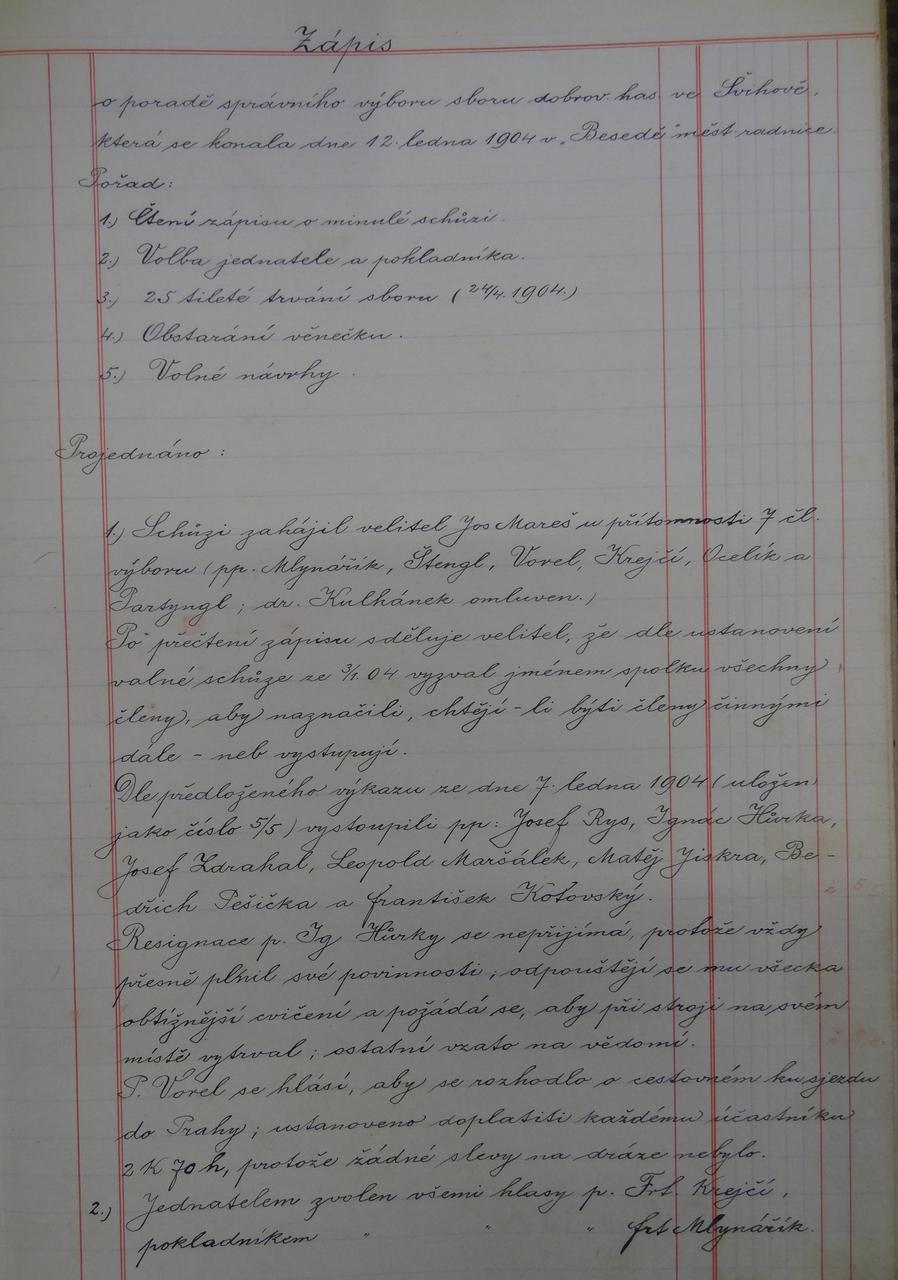 Zápis
o poradě správního výboru sboru dobrov. has. ve Švihově,
která se konala dne 12. ledna 1904 v „Besedě" měst. radnice.
Pořad:
1.) Čtení zápisu o minulé schůzi.
2.) Volba jednatele a pokladníka.
3.) 25 tileté trvání sboru (24/4. 1904.)
4.) Obstarání věnečku.
5.) Volné návrhy.
Projednáno:
1.) Schůzi zahájil velitel Jos Mareš u přítomnosti 7 čl.
výboru (pp. Mlynářík, Štengl, Vorel, Krejčí, Ocelík a
Partyngl; dr. Kulhánek omluven.)
Po přečtení zápisu sděluje velitel, že dle ustanovení
valné schůze ze 3/1. 04 vyzval jménem spolku všechny
členy, aby naznačili, chtějí-li býti členy činnými
dále - neb vystupují.
Dle předloženého výkazu ze dne 7. ledna 1904 (uložen
jako číslo 5/5) vystoupili pp: Josef Rys, Ignác Hůrka,
Josef Zdrahal, Leopold Maršálek, Matěj Jiskra, Be-
dřich Pešička a František Kotovský.
Resignace p. Ig Hůrky se nepřijímá, protože vždy
přesně plnil své povinnosti; odpouštějí se mu všecka
obtížnější cvičení a požádá se, aby při stroji na svém
místě vytrval; ostatní vzato na vědomí.
P. Vorel se hlásí, aby se rozhodlo o cestovném ku sjezdu
do Prahy; ustanoveno doplatiti každému účastníku
2 K 70 h, protože žádné slevy na dráze nebylo.
2.) Jednatelem zvolen všemi hlasy p. Frt. Krejčí,
pokladníkem " " " frt Mlynářík.